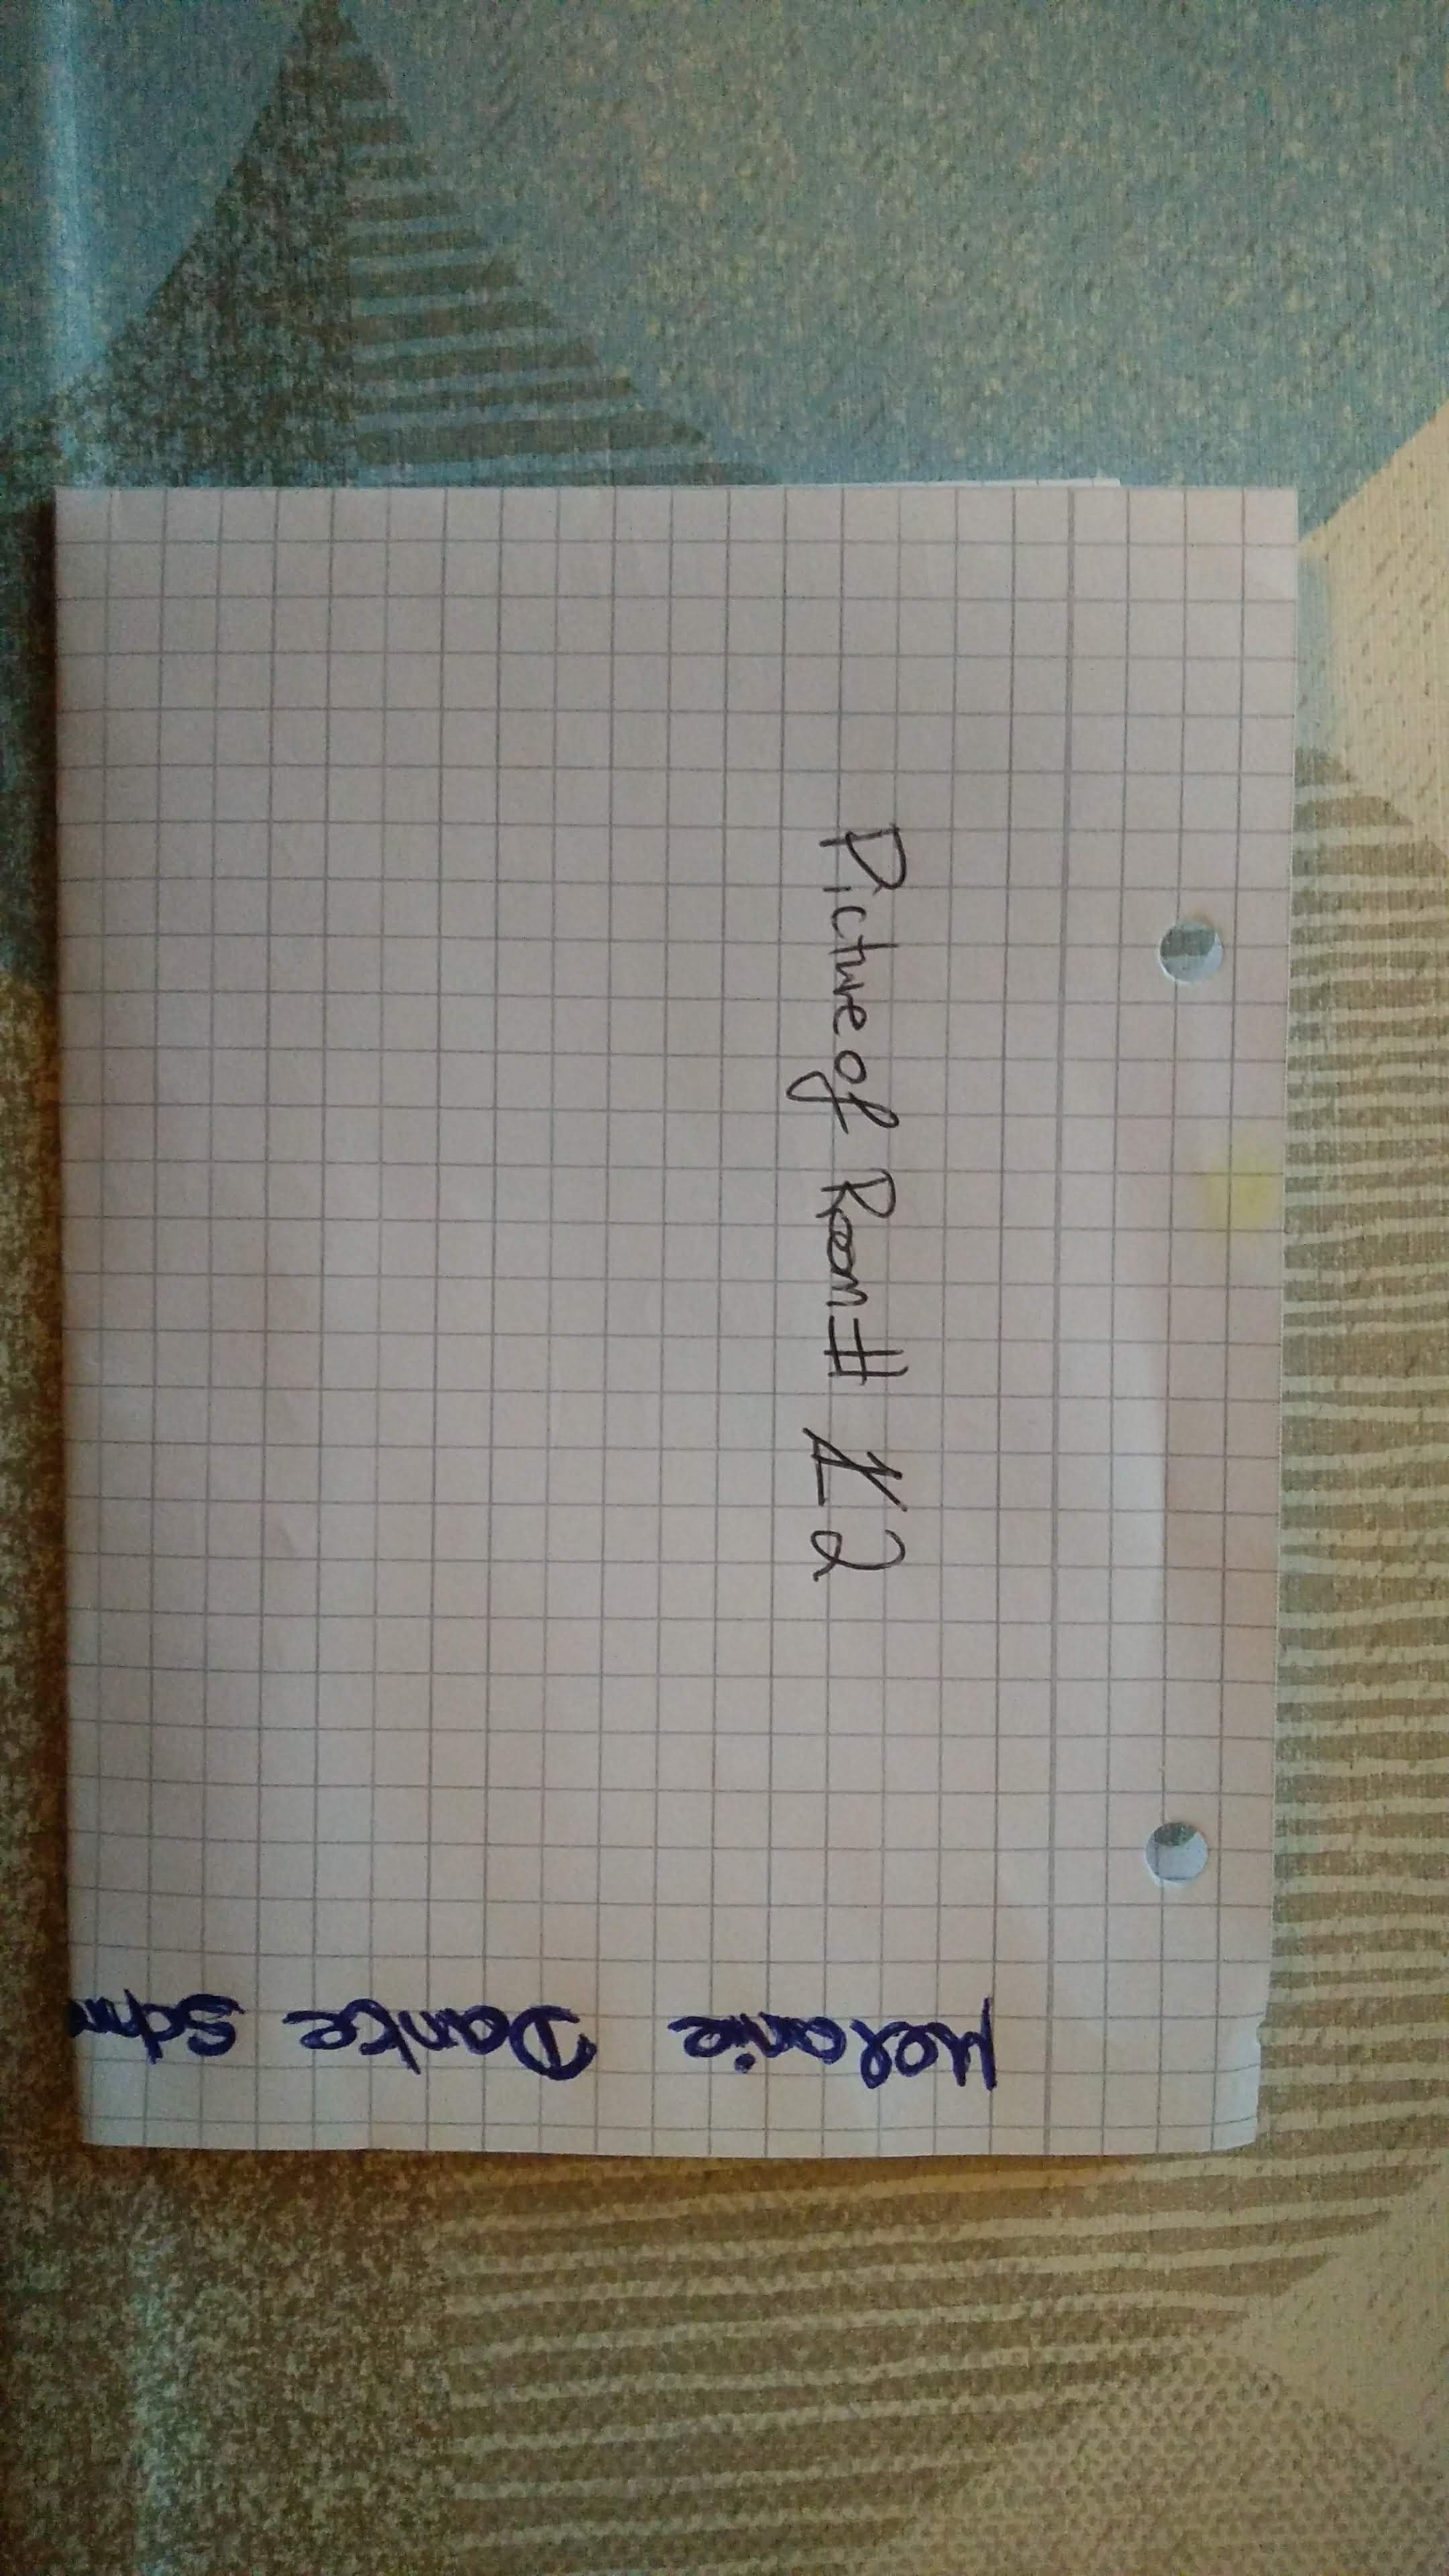 Picture of Room# 12
Melanie Dante Schm